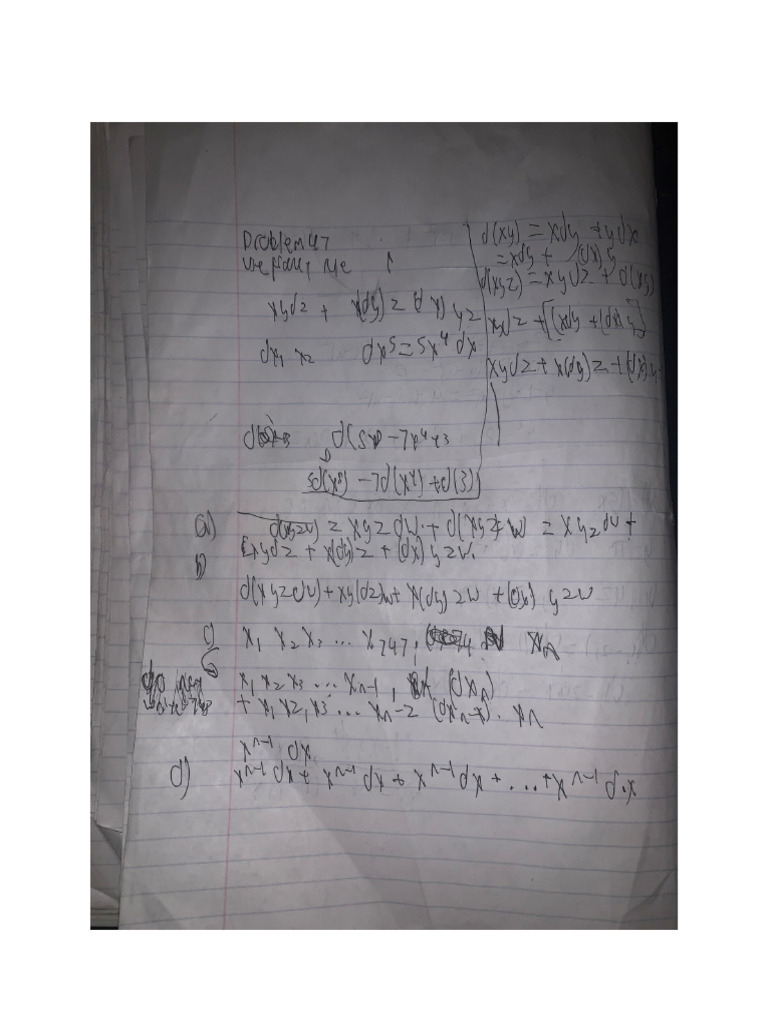 Problem 47
d(xy) = xdy + ydx
= xdy + (dx)y
d(xyz) = xydz + d(xy)
xydz + x(dy)z (dx) yz
xydz + [(xdy + (dx)y]
dx5 = 5x4 dx
xydz + x(dy)z + (dx) y
d(5x - 7x4 + 3
5d(x) - 7d(x4) + d(3)
a) d(xyzw) = xyzdw + d(xyz w) = xyzdw +
xydz + x(dy)z + (dx) yzw.
b)
d(xyzdw) + xy(dz)w + x(dy)zw + (dx) yzw
c) x1 x2 x3 ... x747, xn
x1 x2 x3 ... xn-1, (dxn)
+ x1 x2, x3 ... xn-2 (dxn-1). xn
xn-1 dx
d) xn-1 dx + xn-1 dx + xn-1 dx + ... + xn-1 d.x